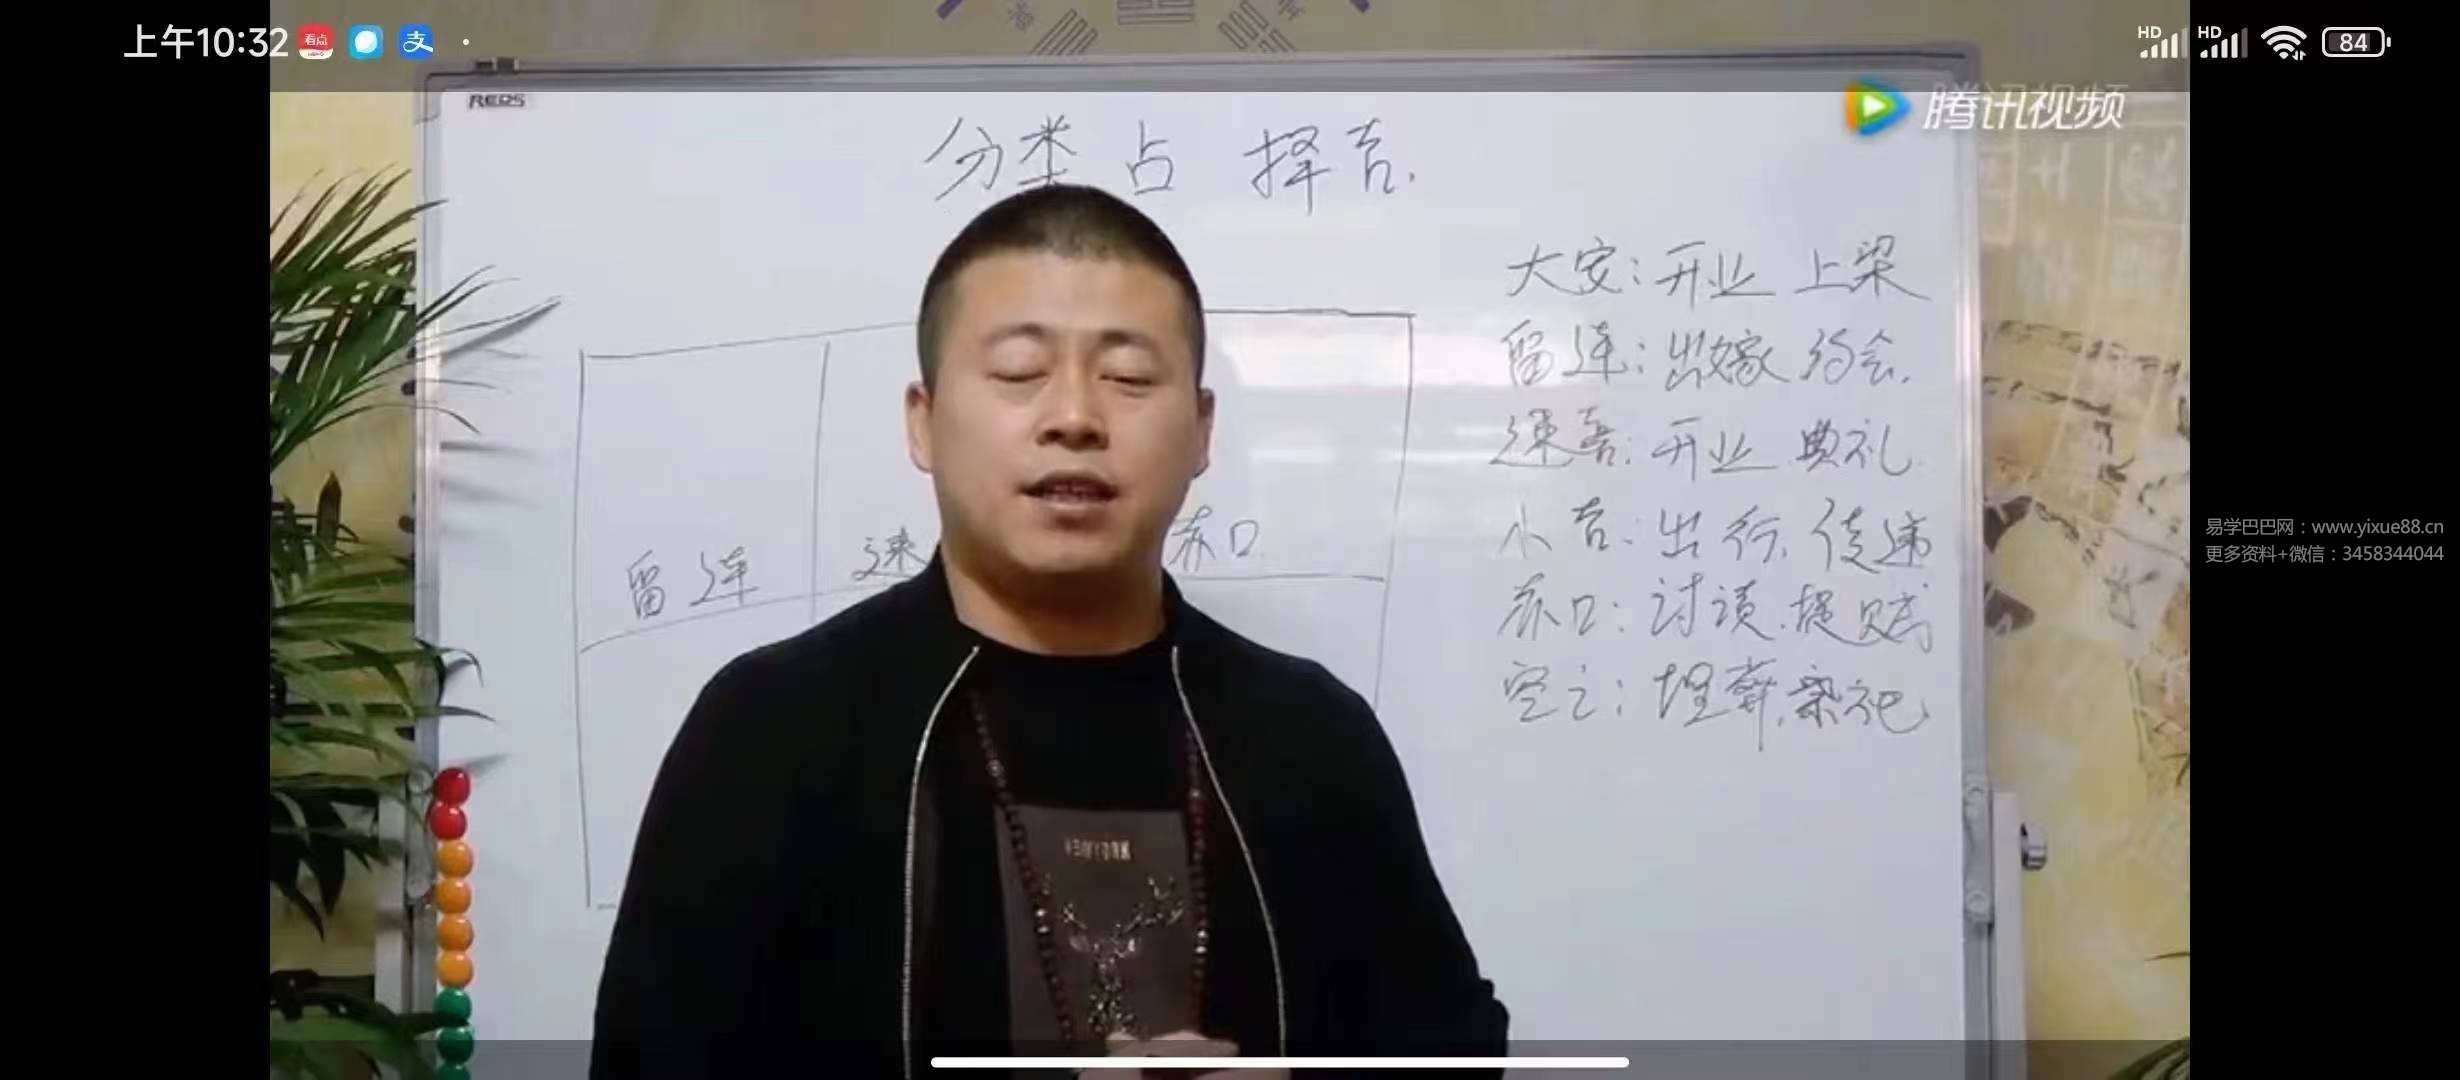 上午10:32
看点
支
HD HD 84
REDS
腾讯视频
分类占 择吉.
大安：开业 上梁
留连：出嫁 约会.
速喜：开业 典礼.
小吉：出行.传递
赤口：讨债.提贼
空亡：埋葬.祭祀
留连
速
赤口
易学巴巴网：www.yixue88.cn
更多资料+微信：3458344044